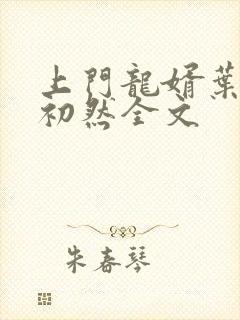 上門龍婿葉
初然全文
朱春琴